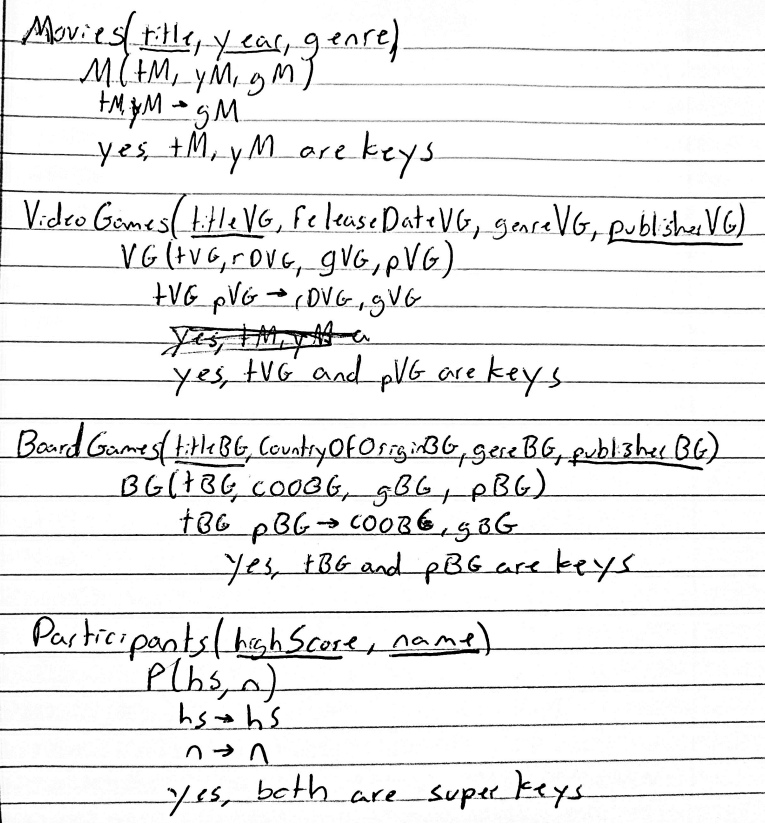 Movies(title, year, genre)
M(tM, yM, gM)
tM, yM → gM
yes, tM, yM are keys
VideoGames(titleVG, releaseDateVG, genreVG, publisherVG)
VG(tVG, rDVG, gVG, pVG)
tVG pVG → rDVG, gVG
yes, tM, yM a
yes, tVG and pVG are keys
BoardGames(titleBG, CountryOfOriginBG, gereBG, publisherBG)
BG(tBG, COOBG, gBG, pBG)
tBG pBG → COOBG, gBG
Yes, tBG and pBG are keys
Participants(highScore, name)
P(hs, n)
hs → hs
n → n
yes, both are super keys